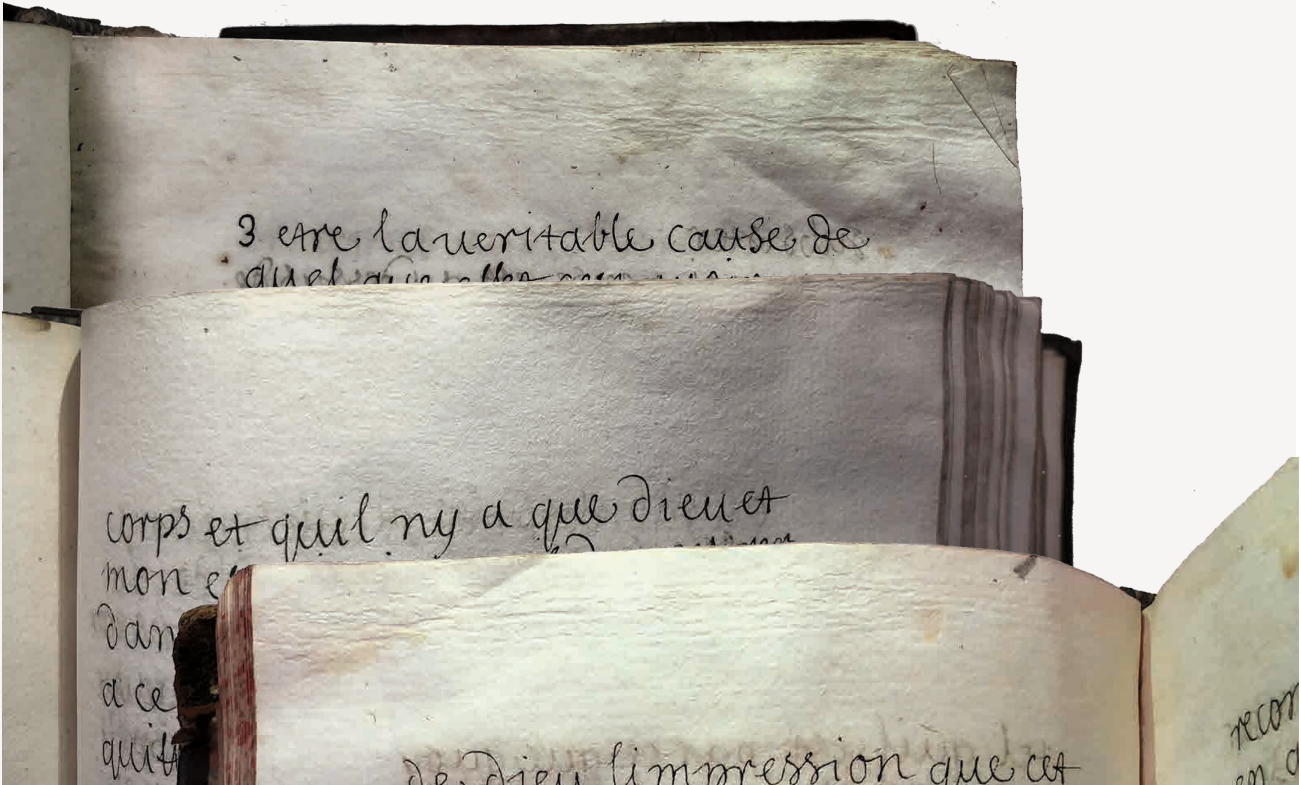 3 etre la ueritable cause de
quelque
corps et quil ny a que dieu et
mon
dan
a ce
quitt
de dieu limpression que cet
recon
en